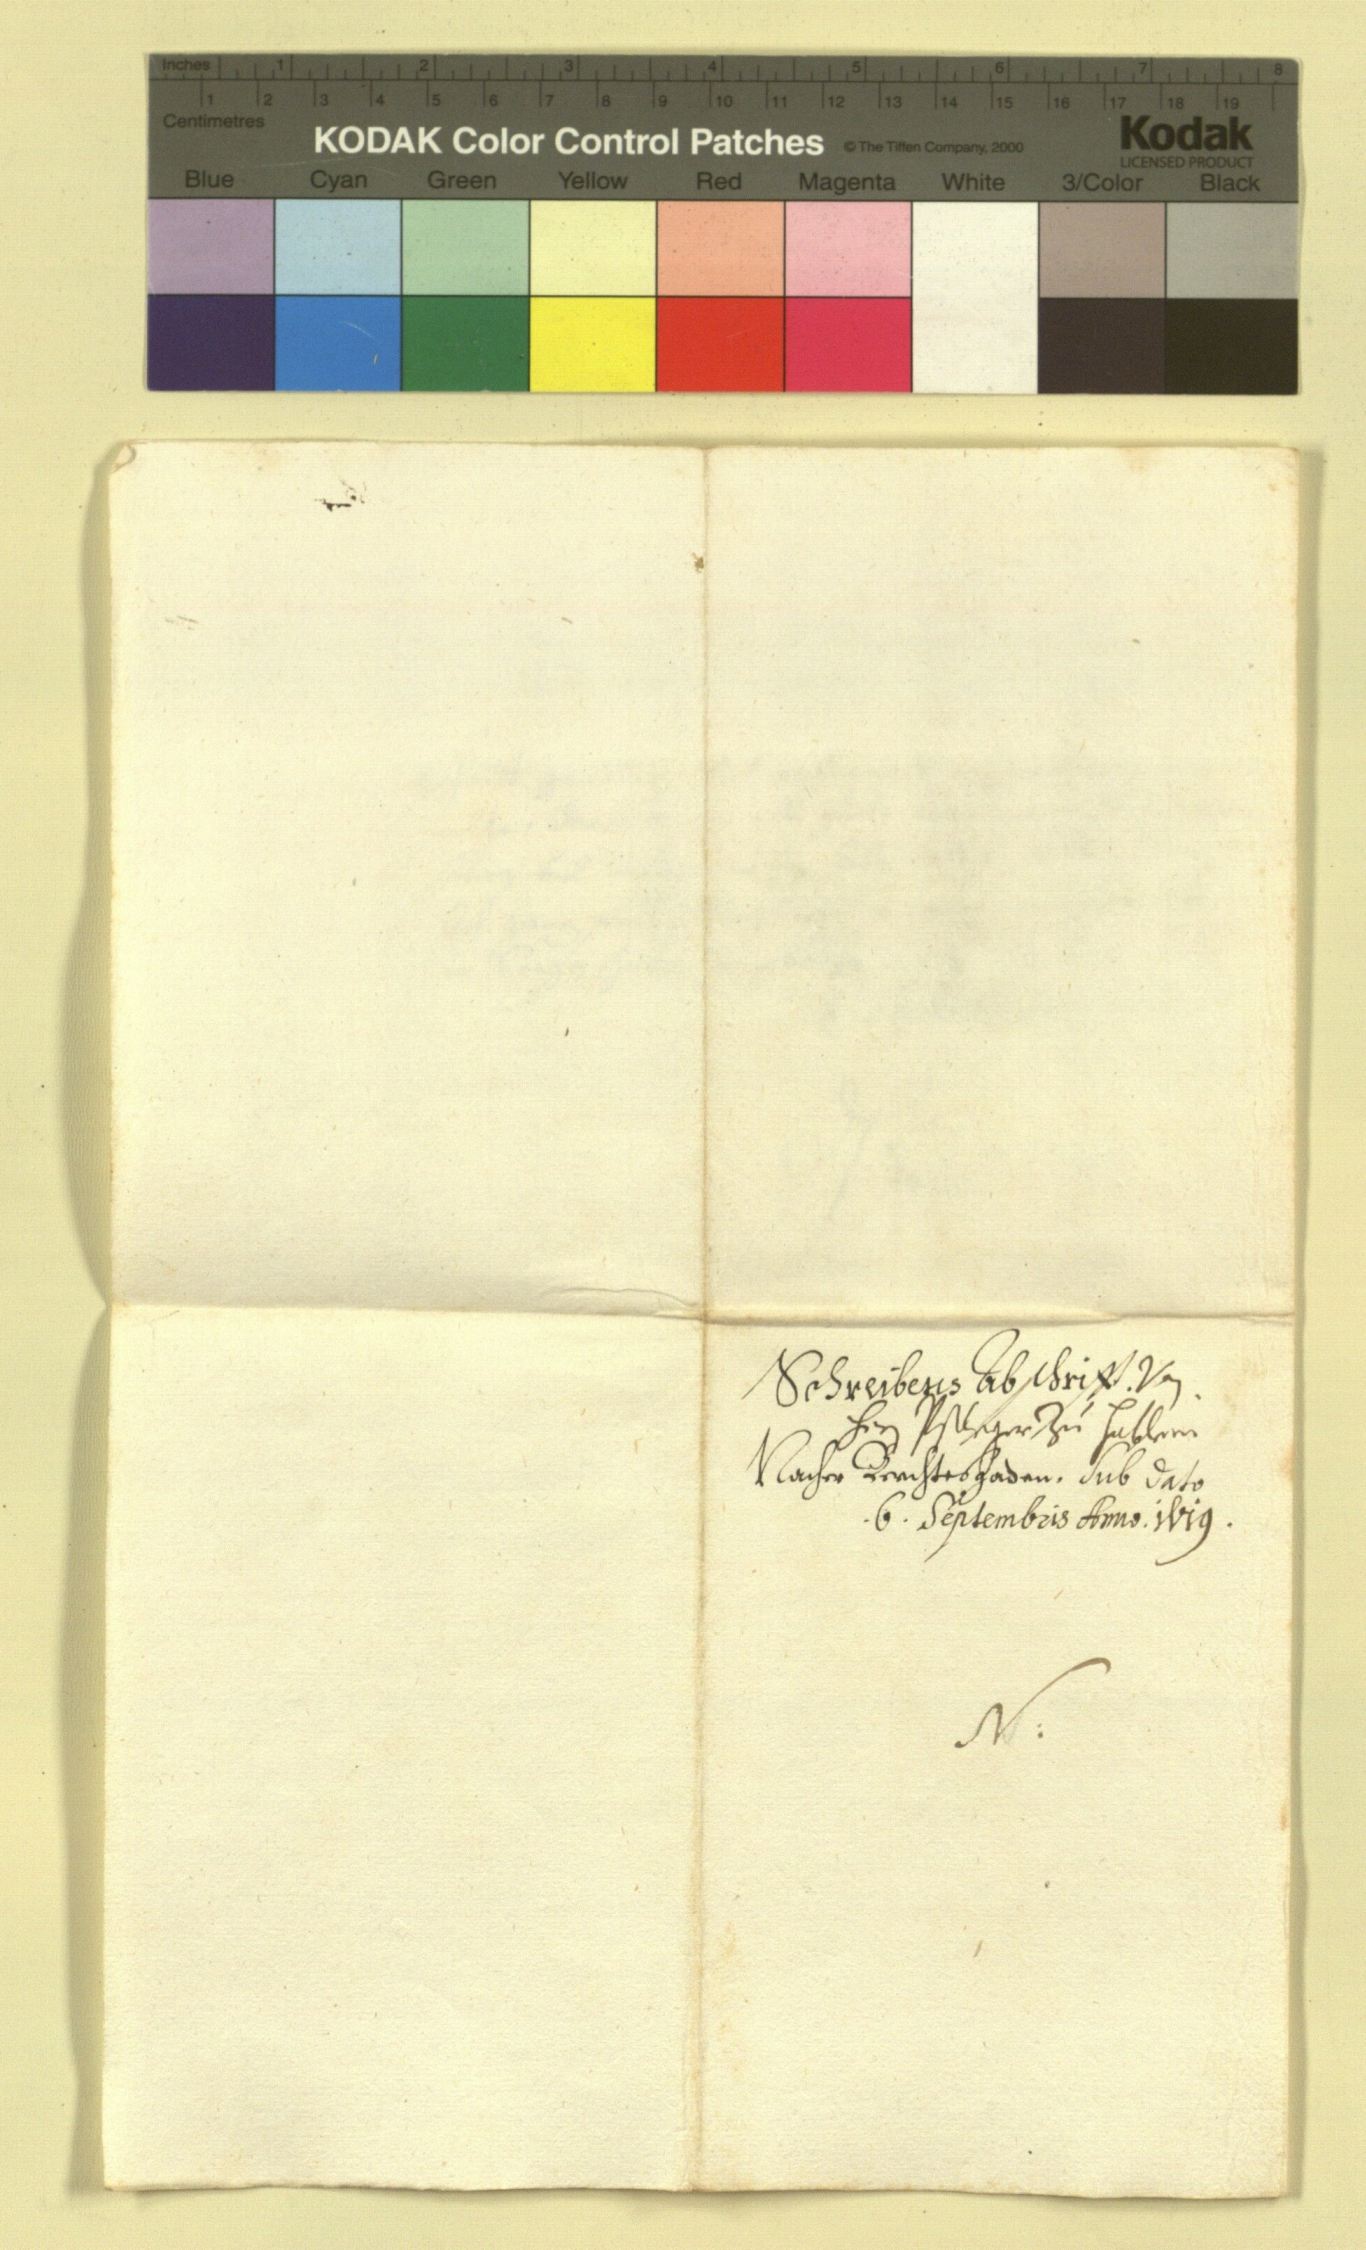 Inches 1 2 3 4 5 6 7 8
1 2 3 4 5 6 7 8 9 10 11 12 13 14 15 16 17 18 19
Centimetres
KODAK Color Control Patches © The Tiffen Company, 2000 Kodak
LICENSED PRODUCT
Blue Cyan Green Yellow Red Magenta White 3/Color Black
Schreibens Abschrifft. Von
Pfleger zu
Nacher Berchtesgaden. sub dato
.6. Septembris Anno. 1619.
N: